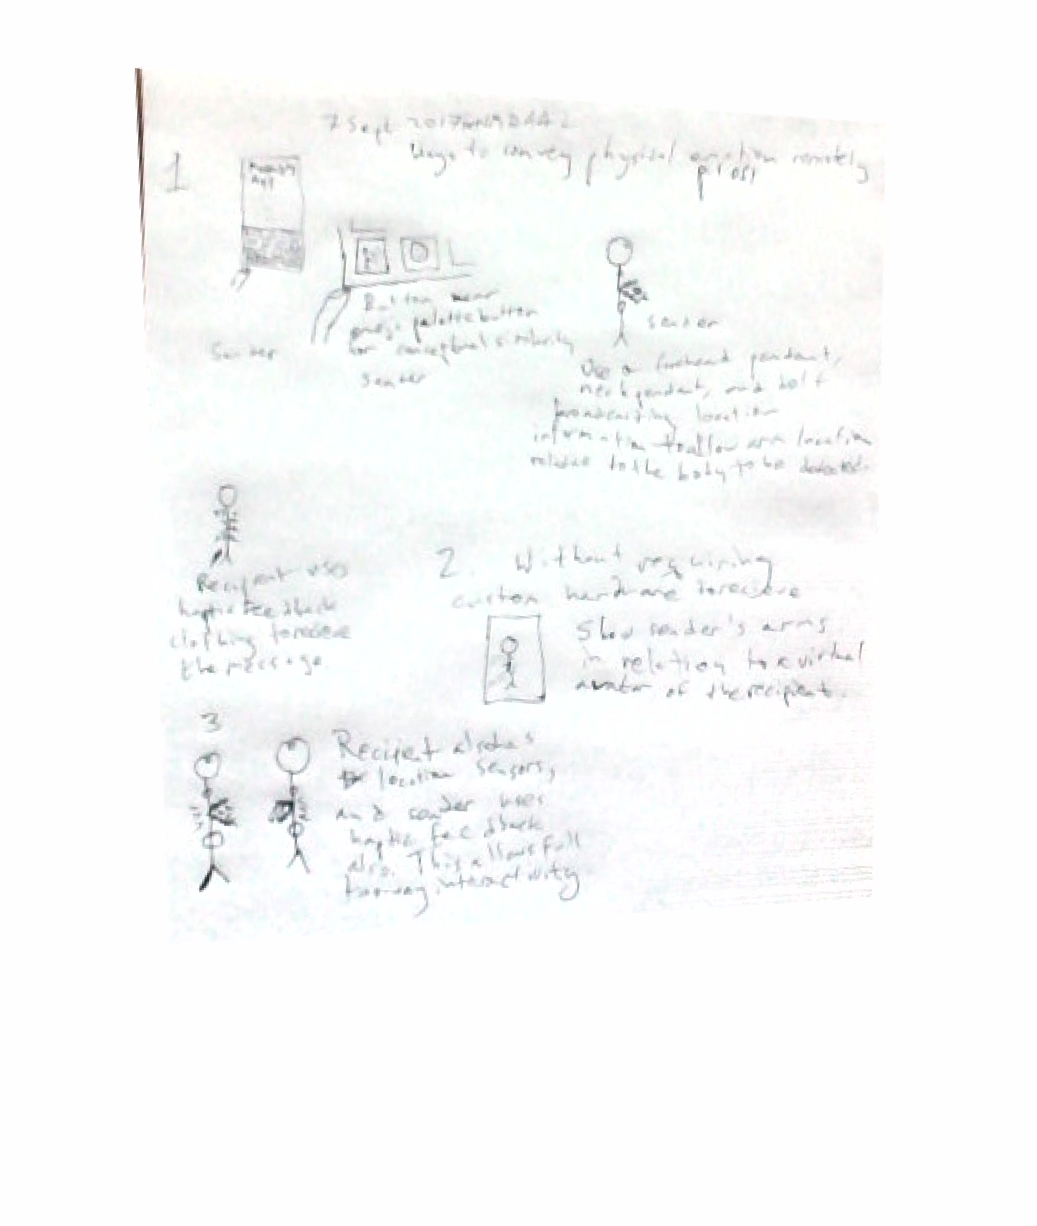 7 Sept 2017
Ways to convey physical emotion remotely
1
Button near
palette button
for conceptual similarity
Sender
Sender
Sender
Use a forehead pendant,
neck pendant, and belt
broadcasting location
information to allow arm location
relative to the body to be detected.
Recipient uses
haptic feedback
clothing to recieve
the message.
2. Without requiring
custom hardware to recieve
Show sender's arms
in relation to a virtual
avatar of the recipient.
3
Recipient also has
location sensors,
and sender uses
haptic feedback
also. This allows full
two-way interactivity